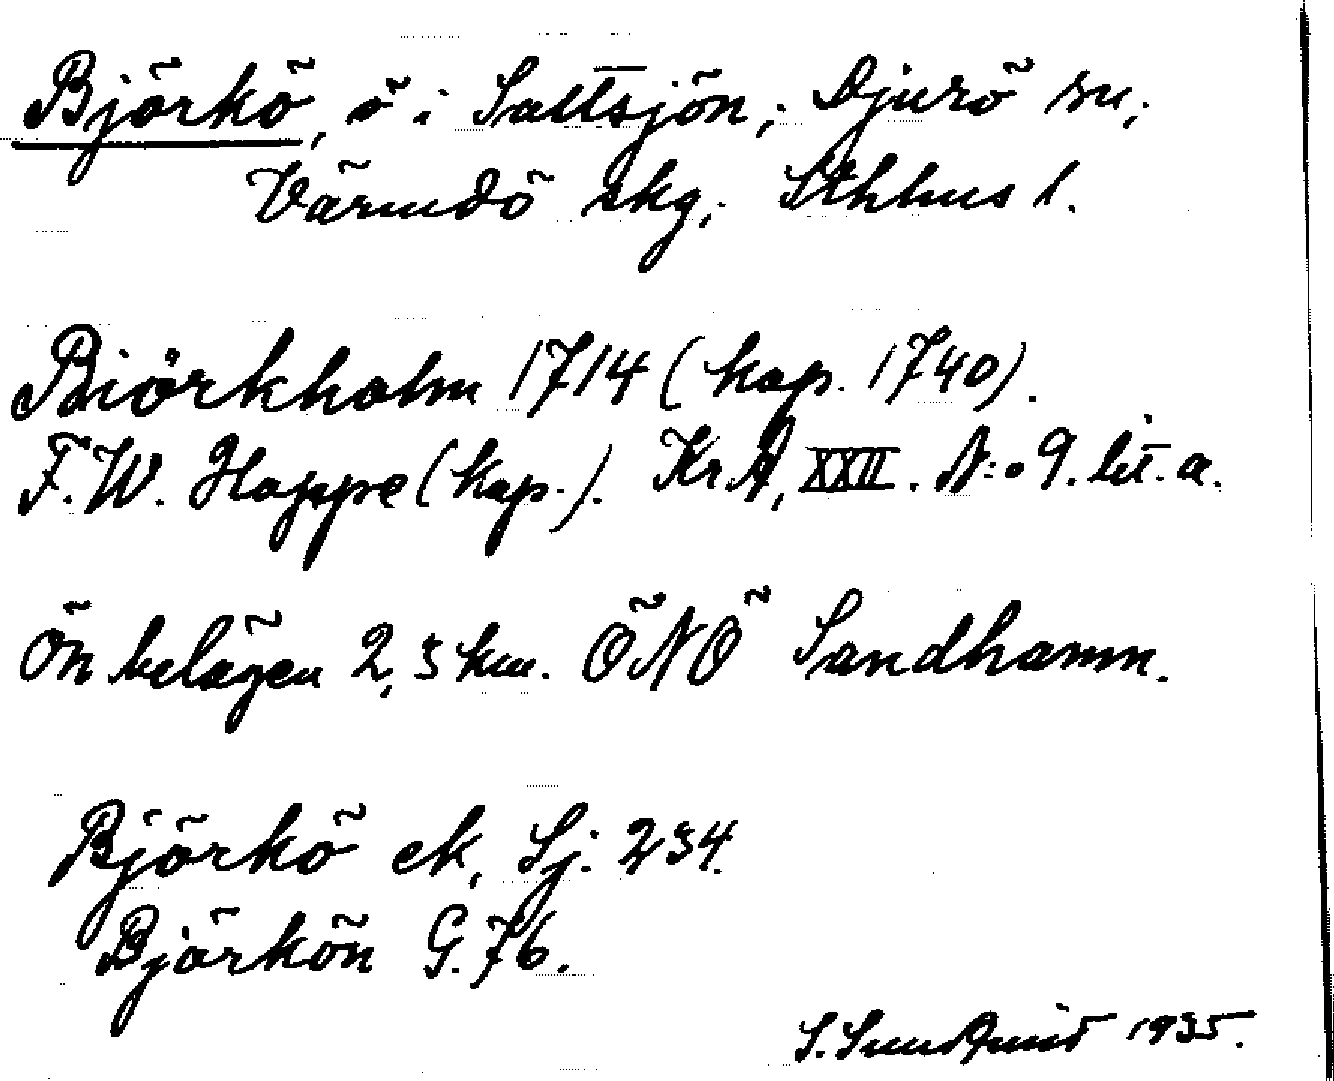 Björkö, ö i Saltsjön, Djurö sn,
Värmdö skg, Sthlms l.
Biörkholm 1714 (kop. 1740).
F. W. Hoppe (kop.). KrA, XXII. N:o 9. lit. a.
Ön belägen 2,5 km. ÖNÖ Sandhamn.
Björkö ek, Sj. 234.
Björkön G. 76.
S. Sundqvist 1935.